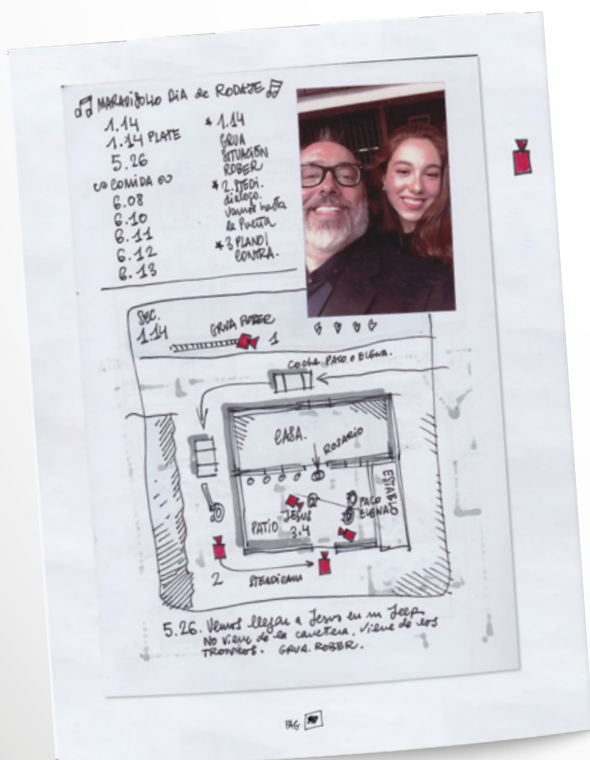 MARAVILLOSO DIA de RODAJE
1.14
1.14 PLATE
5.26
COMIDA
6.08
6.10
6.11
6.12
6.13
* 1.14
GRUA
SITUACIÓN
ROBER
* 2. STEDI.
dialogo.
vamos hasta
la Puerta
* 3 PLANO/
CONTRA.
SEC.
1.14
GRUA ROBER
1
coche PACO o ELENA.
CASA.
ROSARIO
ESTABLO
PACO
ELENA
JESUS
3.4
PATIO
2
STEADICAM
5.26. Vemos llegar a Jesus en su Jeep
No viene de la carretera, viene de los
TRONCOS. GRUA. ROBER.
PAG